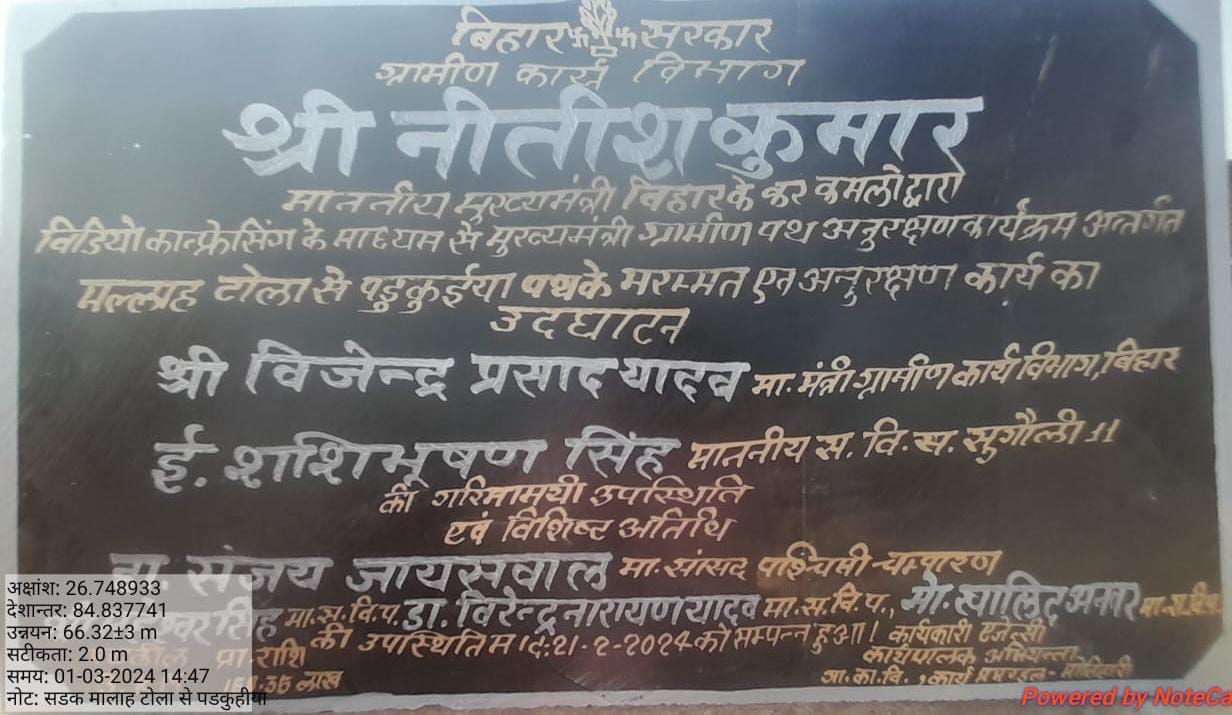 बिहार सरकार
ग्रामीण कार्य विभाग
श्री नीतीश कुमार
माननीय मुख्यमंत्री बिहार के कर कमलो द्वारा
विडियो कान्फ्रेसिंग के माध्यम से मुख्यमंत्री ग्रामीण पथ अनुरक्षण कार्यक्रम अन्तर्गत
मल्लाह टोला से पडुकुईया पथके मरम्मत एव अनुरक्षण कार्य का
उदघाटन
श्री विजेन्द्र प्रसाद यादव मा. मंत्री ग्रामीण कार्य विभाग, बिहार
ई. शशिभूषण सिंह माननीय स. वि. स. सुगौली 11
की गरिमामयी उपस्थिति
एवं विशिष्ट अतिथि
डा. संजय जायसवाल मा. सांसद पश्चिमी चम्पारण
सिंह मा. स. वि. प. डा. विरेन्द्र नारायण यादव मा. स. वि. प., मो. खालिद अनवर मा. स. वि. प.
की उपस्थिति में दि. 21-2-2024 को सम्पन्न हुआ। कार्यकारी एजेन्सी
प्रा. राशि कार्यपालक अभियन्ता
.35 लाख ग्रा. का. वि., कार्य प्रमण्डल-
अक्षांश: 26.748933
देशान्तर: 84.837741
उन्नयन: 66.32±3 m
सटीकता: 2.0 m
समय: 01-03-2024 14:47
नोट: सडक मालाह टोला से पडकुहीया
Powered by NoteCa